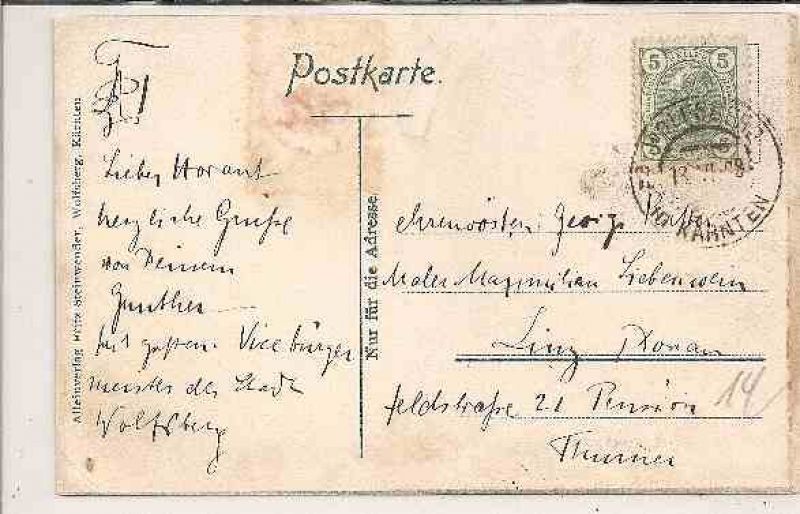 Postkarte.
5 5
WOLFSBERG
KÄRNTEN
Lieber Horant
herzliche Grüße
von Deinem
Gunther
seit gestern Vicebürger
meister der Stadt
Wolfsberg
Alleinverlag Fritz Steinwender, Wolfsberg, Kärnten
Nur für die Adresse.
Georg
Maler Maximilian Liebenwein
Linz Donau
Feldstraße 21 Pension
14